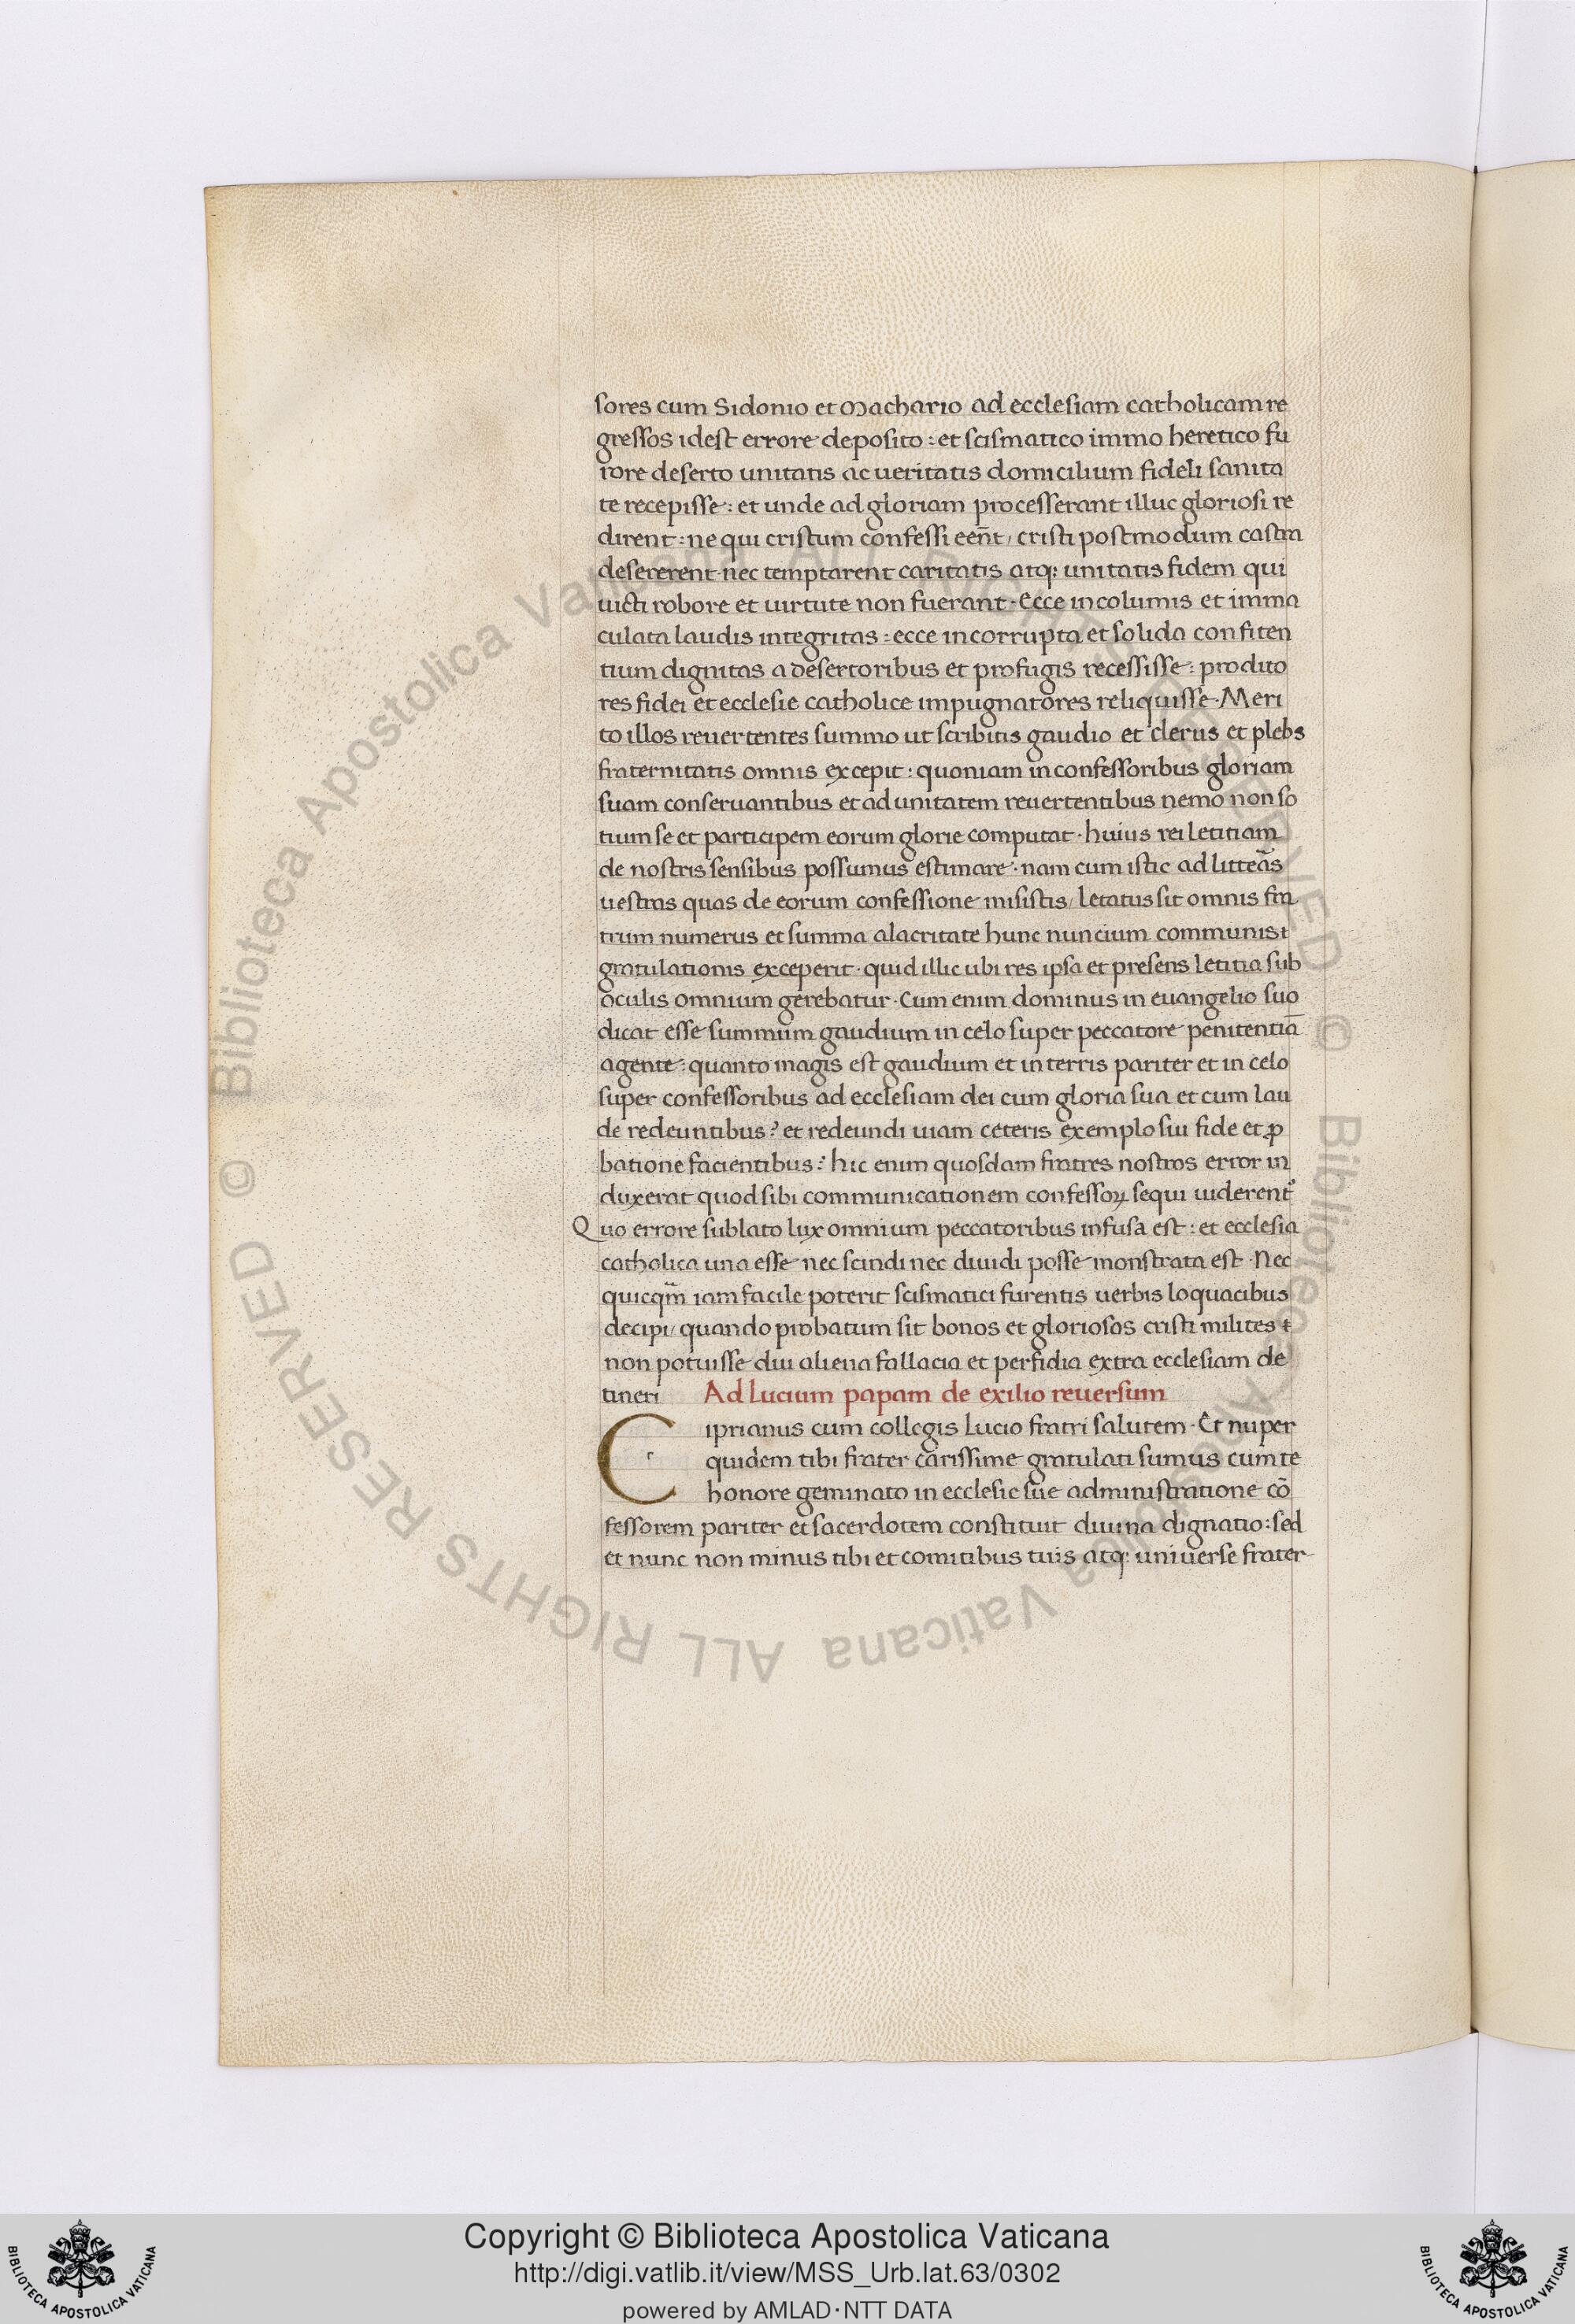 sores cum Sidonio et Machario ad ecclesiam catholicam re
gressos idest errore deposito : et scismatico immo heretico fu
rore deserto unitatis ac ueritatis domicilium fideli sanita
te recepisse : et unde ad gloriam processerant illuc gloriosi re
dirent : ne qui cristum confessi eēnt / cristi postmodum castra
desererent · nec temptarent caritatis atq; unitatis fidem qui
uicti robore et uirtute non fuerant · Ecce incolumis et imma
culata laudis integritas : ecce incorrupta et solida confiten
tium dignitas a desertoribus et profugis recessisse : prodito
res fidei et ecclesie catholice impugnatores reliquisse · Meri
to illos reuertentes summo ut scribitis gaudio et clerus et plebs
fraternitatis omnis excepit : quoniam in confessoribus gloriam
suam conseruantibus et ad unitatem reuertentibus nemo non so
tium se et participem eorum glorie computat · huius rei letitiam
de nostris sensibus possumus estimare · nam cum istic ad litteās
uestras quas de eorum confessione misistis / letatus sit omnis fra
trum numerus et summa alacritate hunc nuncium communis
gratulationis exceperit · quid illic ubi res ipsa et presens letitia sub
oculis omnium gerebatur · Cum enim dominus in euangelio suo
dicat esse summum gaudium in celo super peccatore penitentiā
agente : quanto magis est gaudium et in terris pariter et in celo
super confessoribus ad ecclesiam dei cum gloria sua et cum lau
de redeuntibus ? et redeundi uiam ceteris exemplo sui fide et ꝓ
batione facientibus ? hic enim quosdam fratres nostros error in
duxerat quod sibi communicationem confessoꝝ sequi uiderent᷑
Quo errore sublato lux omnium peccatoribus infusa est : et ecclesia
catholica una esse nec scindi nec diuidi posse monstrata est · Nec
quicq̄m iam facile poterit scismatici furentis uerbis loquacibus
decipi / quando probatum sit bonos et gloriosos cristi milites
non potuisse diu aliena fallacia et perfidia extra ecclesiam de
tineri Ad Lucium papam de exilio reuersum
Ciprianus cum collegis Lucio fratri salutem · Et nuper
quidem tibi frater carissime gratulati sumus cum te
honore geminato in ecclesie sue administratione cō
fessorem pariter et sacerdotem constituit diuina dignatio : sed
et nunc non minus tibi et comitibus tuis atq; uniuerse frater
© Biblioteca Apostolica Vaticana ALL RIGHTS RESERVED © Biblioteca Apostolica Vaticana ALL RIGHTS RESERVED
Copyright © Biblioteca Apostolica Vaticana
http://digi.vatlib.it/view/MSS_Urb.lat.63/0302
powered by AMLAD·NTT DATA
BIBLIOTECA APOSTOLICA VATICANA
BIBLIOTECA APOSTOLICA VATICANA